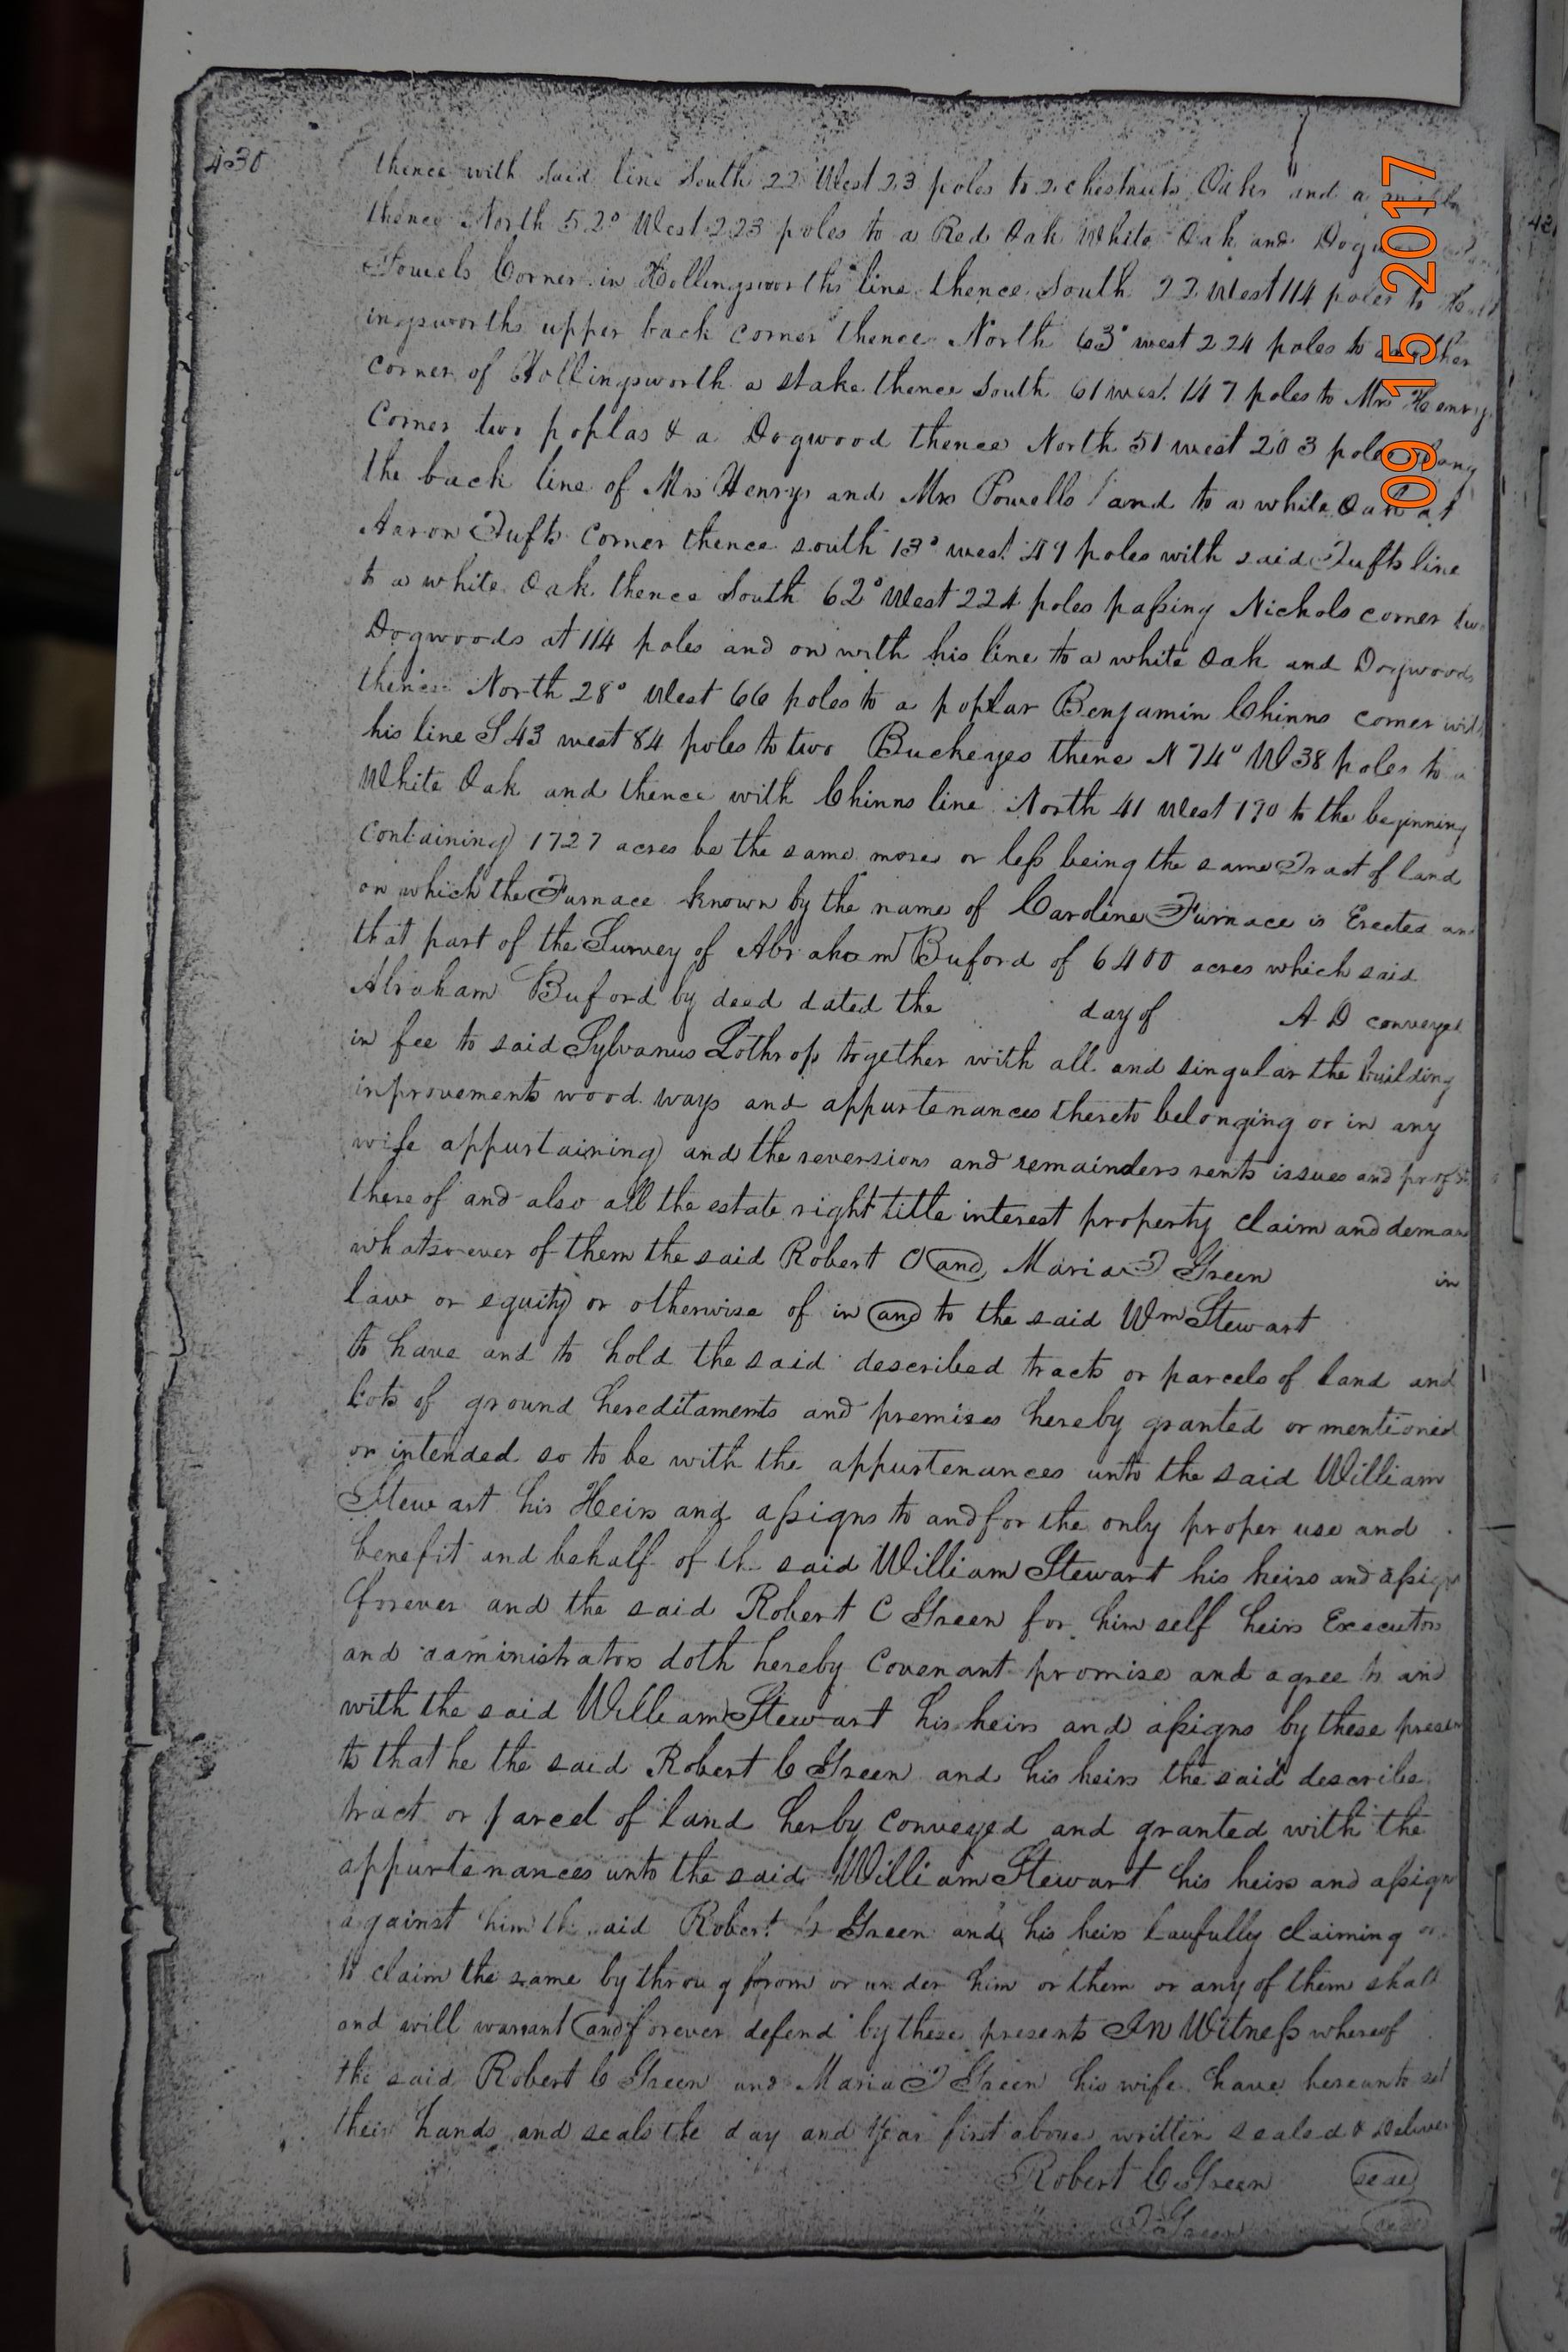 430
thence with said line South 22 West 23 poles to 2 chestnuts Oaks and a
thence North 52° West 223 poles to a Red Oak White Oak and
Fowels Corner in Hollingsworths line thence South 22 West 114 poles to
ingsworths upper back corner thence North 63° west 224 poles to another
corner of Hollingsworth a stake thence South 61 west 147 poles to Mrs Henrys
Corner two poplas & a Dogwood thence North 51 west 203 poles along
the back line of Mrs Henrys and Mrs Powells land to a white Oak at
Aaron Tufts Corner thence south 13° west 49 poles with said Tufts line
to a white Oak thence South 62° West 224 poles passing Nichols corner
Dogwoods at 114 poles and on with his line to a white Oak and Dogwoods
thence North 28° West 66 poles to a poplar Benjamin Chinns corner with
his line S 43 west 84 poles to two Buckeyes thence N 74° W 38 poles to a
White Oak and thence with Chinns line North 41 West 170 to the beginning
Containing 1727 acres be the same more or less being the same Tract of land
on which the Furnace known by the name of Caroline Furnace is Erected an
that part of the Survey of Abraham Buford of 6400 acres which said
Abraham Buford by deed dated the day of A D conveyed
in fee to said Sylvanus Lothrop together with all and singular the building
inprovements wood ways and appurtenances thereto belonging or in any
wise appurtaining and the reversions and remainders rents issues and profits
thereof and also all the estate right title interest property claim and deman
whatsoever of them the said Robert C and Maria T Green in
law or equity or otherwise of in and to the said Wm Stewart
to have and to hold the said described tracts or parcels of land and
Lots of ground hereditaments and premises hereby granted or mentioned
or intended so to be with the appurtenances unto the said William
Stewart his Heirs and assigns to and for the only proper use and
benefit and behalf of th said William Stewart his heirs and assigns
forever and the said Robert C Green for him self heirs Executors
and administrators doth hereby Covenant promise and agree to and
with the said William Stewart his heirs and assigns by these presen
ts that he the said Robert C Green and his heirs the said describe
tract or parcel of land herby conveyed and granted with the
appurtenances unto the said William Stewart his heirs and assign
against him the said Robert C Green and his heirs laufully claiming or
to claim the same by throug from or under him or them or any of them shall
and will warrant and forever defend by these presents In Witness whereof
the said Robert C Green and Maria T Green his wife have hereunto set
their hands and seals the day and year first above written sealed & Deliver
Robert C Green seal
T Green seal
09 15 2017